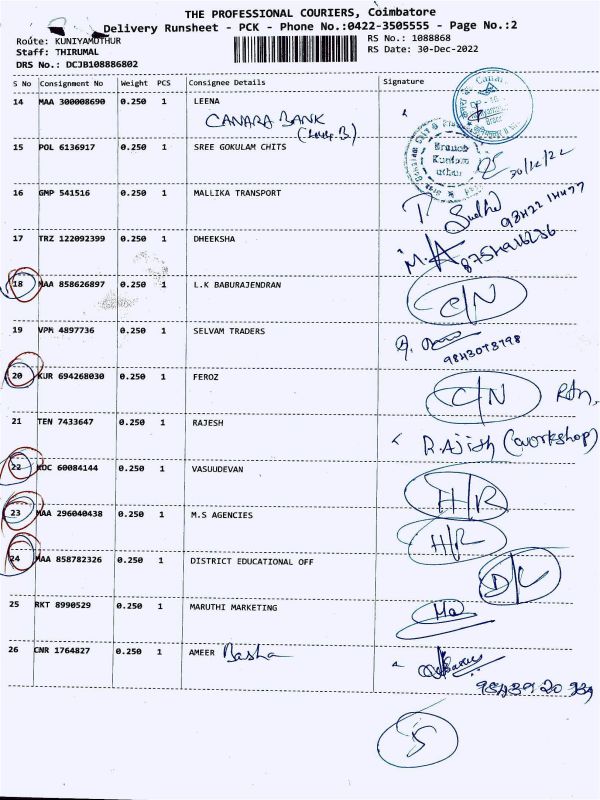 THE PROFESSIONAL COURIERS, Coimbatore
Delivery Runsheet - PCK - Phone No.:0422-3505555 - Page No.:2
Route: KUNIYAMUTHUR
RS No.: 1088868
Staff: THIRUMAL
RS Date: 30-Dec-2022
DRS No.: DCJB108886802
S No Consignment No Weight PCS Consignee Details Signature
14 MAA 300008690 0.250 1 LEENA
CANARA BANK
15 POL 6136917 0.250 1 SREE GOKULAM CHITS
30/12/22
16 GMP 541516 0.250 1 MALLIKA TRANSPORT
17 TRZ 122092399 0.250 1 DHEEKSHA
18 MAA 858626897 0.250 1 L.K BABURAJENDRAN
C/N
19 VPM 4897736 0.250 1 SELVAM TRADERS
20 KUR 694268030 0.250 1 FEROZ
C/N
21 TEN 7433647 0.250 1 RAJESH
R.Ajith (workshop)
22 KDC 60084144 0.250 1 VASUUDEVAN
H/R
23 MAA 296040438 0.250 1 M.S AGENCIES
H/R
24 MAA 858782326 0.250 1 DISTRICT EDUCATIONAL OFF
D/L
25 RKT 8990529 0.250 1 MARUTHI MARKETING
26 CNR 1764827 0.250 1 AMEER Basha
5